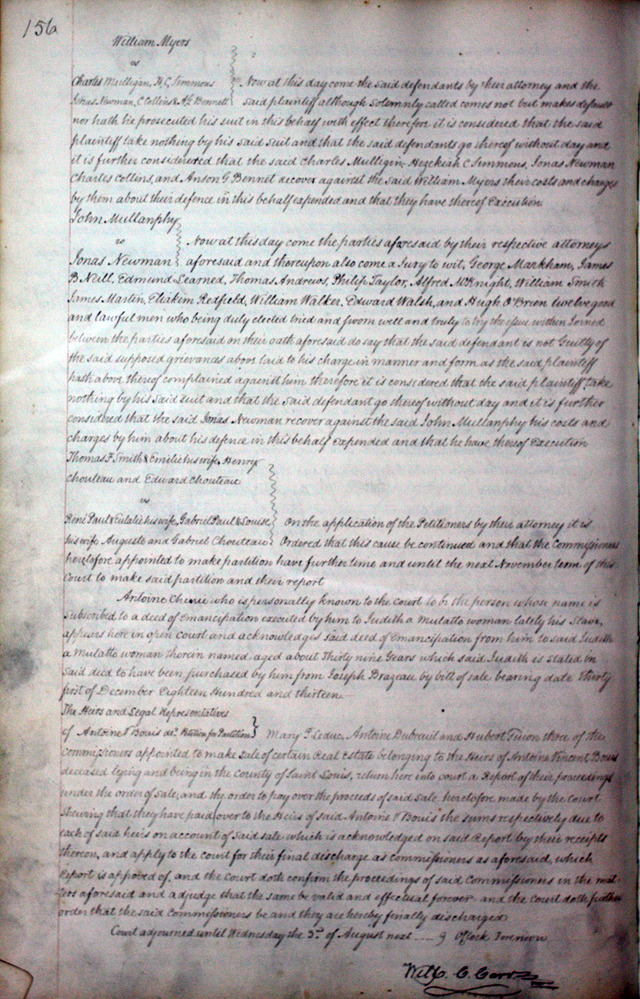 156
William Myers
vs
Charles Mulligin, H. C. Simmons
Jonas Newman, C Collins & A G Bennet
Now at this day come the said defendants by their attorney and the
said plaintiff although solemnly called comes not but makes default
nor hath he prosecuted his suit in this behalf with effect therefore it is considered that the said
plaintiff take nothing by his said suit and that the said defendants go thereof without day and
it is further considered that the said Charles Mulligin, Hezekiah C Simmons, Jonas Newman
Charles Collins, and Anson G Bennet recover against the said William Myers their costs and charges
by them about their defence in this behalf expended and that they have thereof Execution
John Mullanphy
vs
Jonas Newman
Now at this day come the parties aforesaid by their respective attorneys
aforesaid and thereupon also come a Jury to wit, George Markham, James
B Neill, Edmund Learned, Thomas Andrews, Philip Taylor, Alfred McKnight, William Smith
James Martin, Eliakim Redfield, William Walker, Edward Walsh, and Hugh O'Brien twelve good
and lawful men who being duly elected tried and sworn well and truly to try the issue within Joined
between the parties aforesaid on their oath aforesaid do say that the said defendant is not Guilty of
the said supposed grievances above laid to his charge in manner and form as the said plaintiff
hath above thereof complained against him therefore it is considered that the said plaintiff, take
nothing by his said suit and that the said defendant go thereof without day and it is further
considered that the said Jonas Newman recover against the said John Mullanphy his costs and
charges by him about his defence in this behalf expended and that he have thereof Execution
Thomas F. Smith & Emilie his wife, Henry
Chouteau and Edward Chouteau
vs
René Paul & Eulalie his wife, Gabriel Paul & Louise
his wife, Auguste and Gabriel Chouteau
On the application of the Petitioners by their attorney it is
Ordered that this cause be continued and that the Commissioners
heretofore appointed to make partition have further time and until the next November term of this
Court to make said partition and their report
Antoine Chenie who is personally known to the Court to be the person whose name is
subscribed to a deed of emancipation executed by him to Judith a Mulatto woman lately his Slave,
appears here in open court and acknowledges said deed of emancipation from him to said Judith
a Mulatto woman therein named aged about Thirty nine Years which said Judith is stated in
said deed to have been purchased by him from Joseph Brazeau by bill of sale bearing date Thirty
first of December Eighteen Hundred and thirteen
The Heirs and Legal Representatives
of Antoine V Bouis decd. Petition for Partition
Mary P. Leduc, Antoine Dubreuil and Hubert Guion three of the
Commissioners appointed to make sale of certain Real Estate belonging to the Heirs of Antoine Vincent Bouis
deceased lying and being in the County of Saint Louis, return here into court a Report of their proceedings
under the order of sale, and the order to pay over the proceeds of said sale heretofore made by the Court
shewing that they have paid over to the Heirs of said Antoine V Bouis the sums respectively due to
each of said heirs on account of said sale which is acknowledged on said Report by their receipts
thereon, and apply to the court for their final discharge as commissioners as aforesaid, which
Report is appoved of, and the Court doth confirm the proceedings of said Commissioners in the mat-
ters aforesaid and adjudge that the same be valid and effectual forever and the court doth further
order that the said Commissioners be and they are hereby finally discharged
Court adjourned until Wednesday the 3rd. of August next --- 9 O'Clock Forenoon
Wm. C. Carr